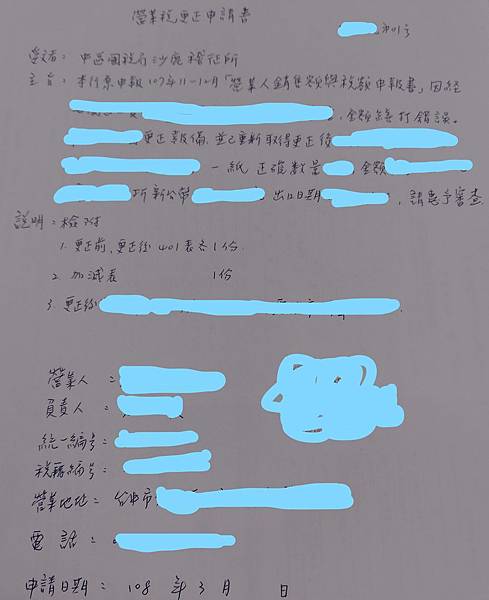 營業稅更正申請書
受文者：中區國稅局沙鹿稽征所
主旨：本行原申報107年11-12月「營業人銷售額與稅額申報書」因經
，金額繕打錯誤。
更正報備，並已重新取得更正後
，一紙 正確數量 金額
折新台幣 出口日期 ，請惠予審查
說明：檢附
1. 更正前、更正後401表各1份
2. 加減表 1份
3. 更正後
營業人：
負責人：
統一編號：
稅籍編號：
營業地址：台中市
電話：
申請日期：108年3月 日